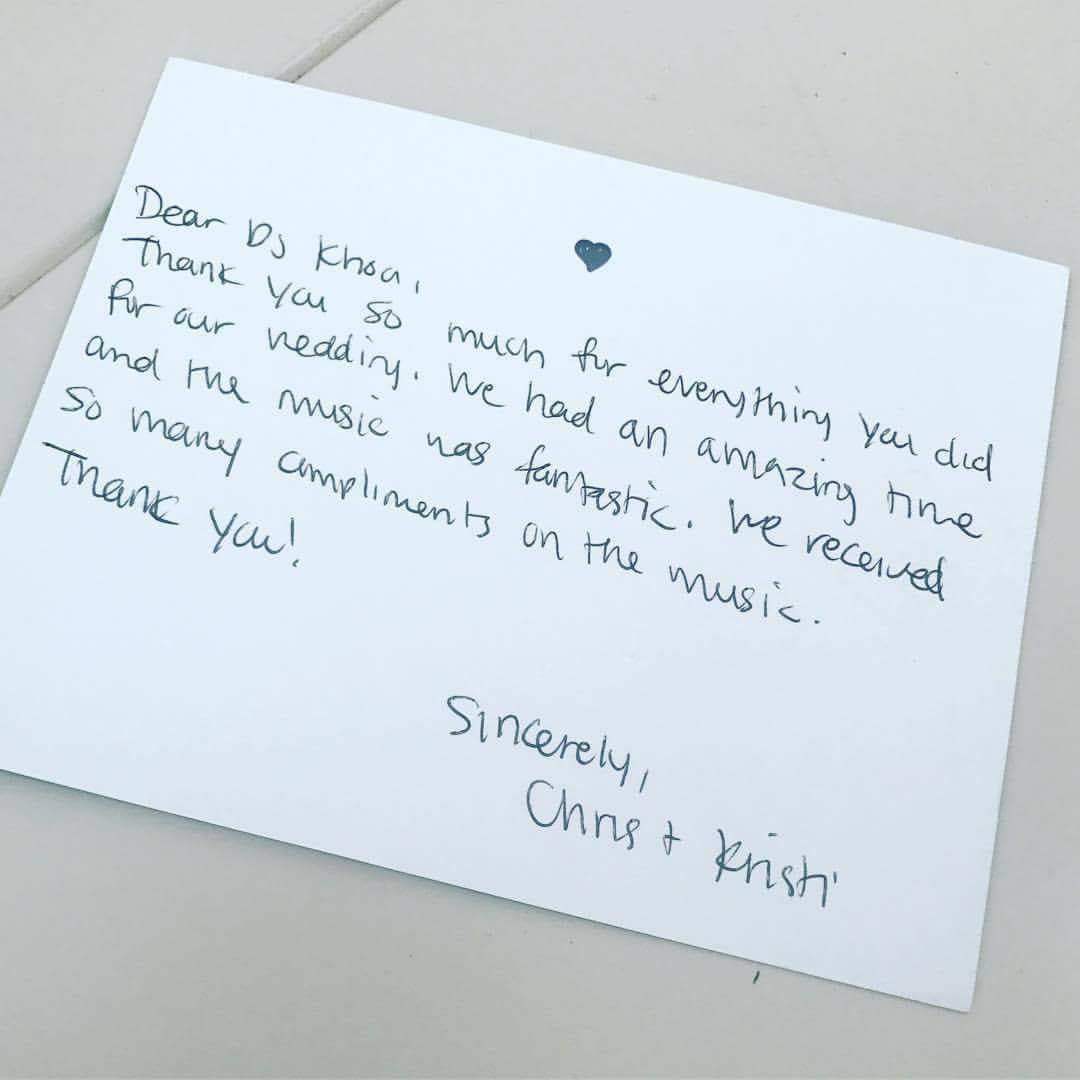 Dear DJ Khoa,
Thank you so much for everything you did
for our wedding. We had an amazing time
and the music was fantastic. We received
so many compliments on the music.
Thank you!
Sincerely,
Chris + Kristi